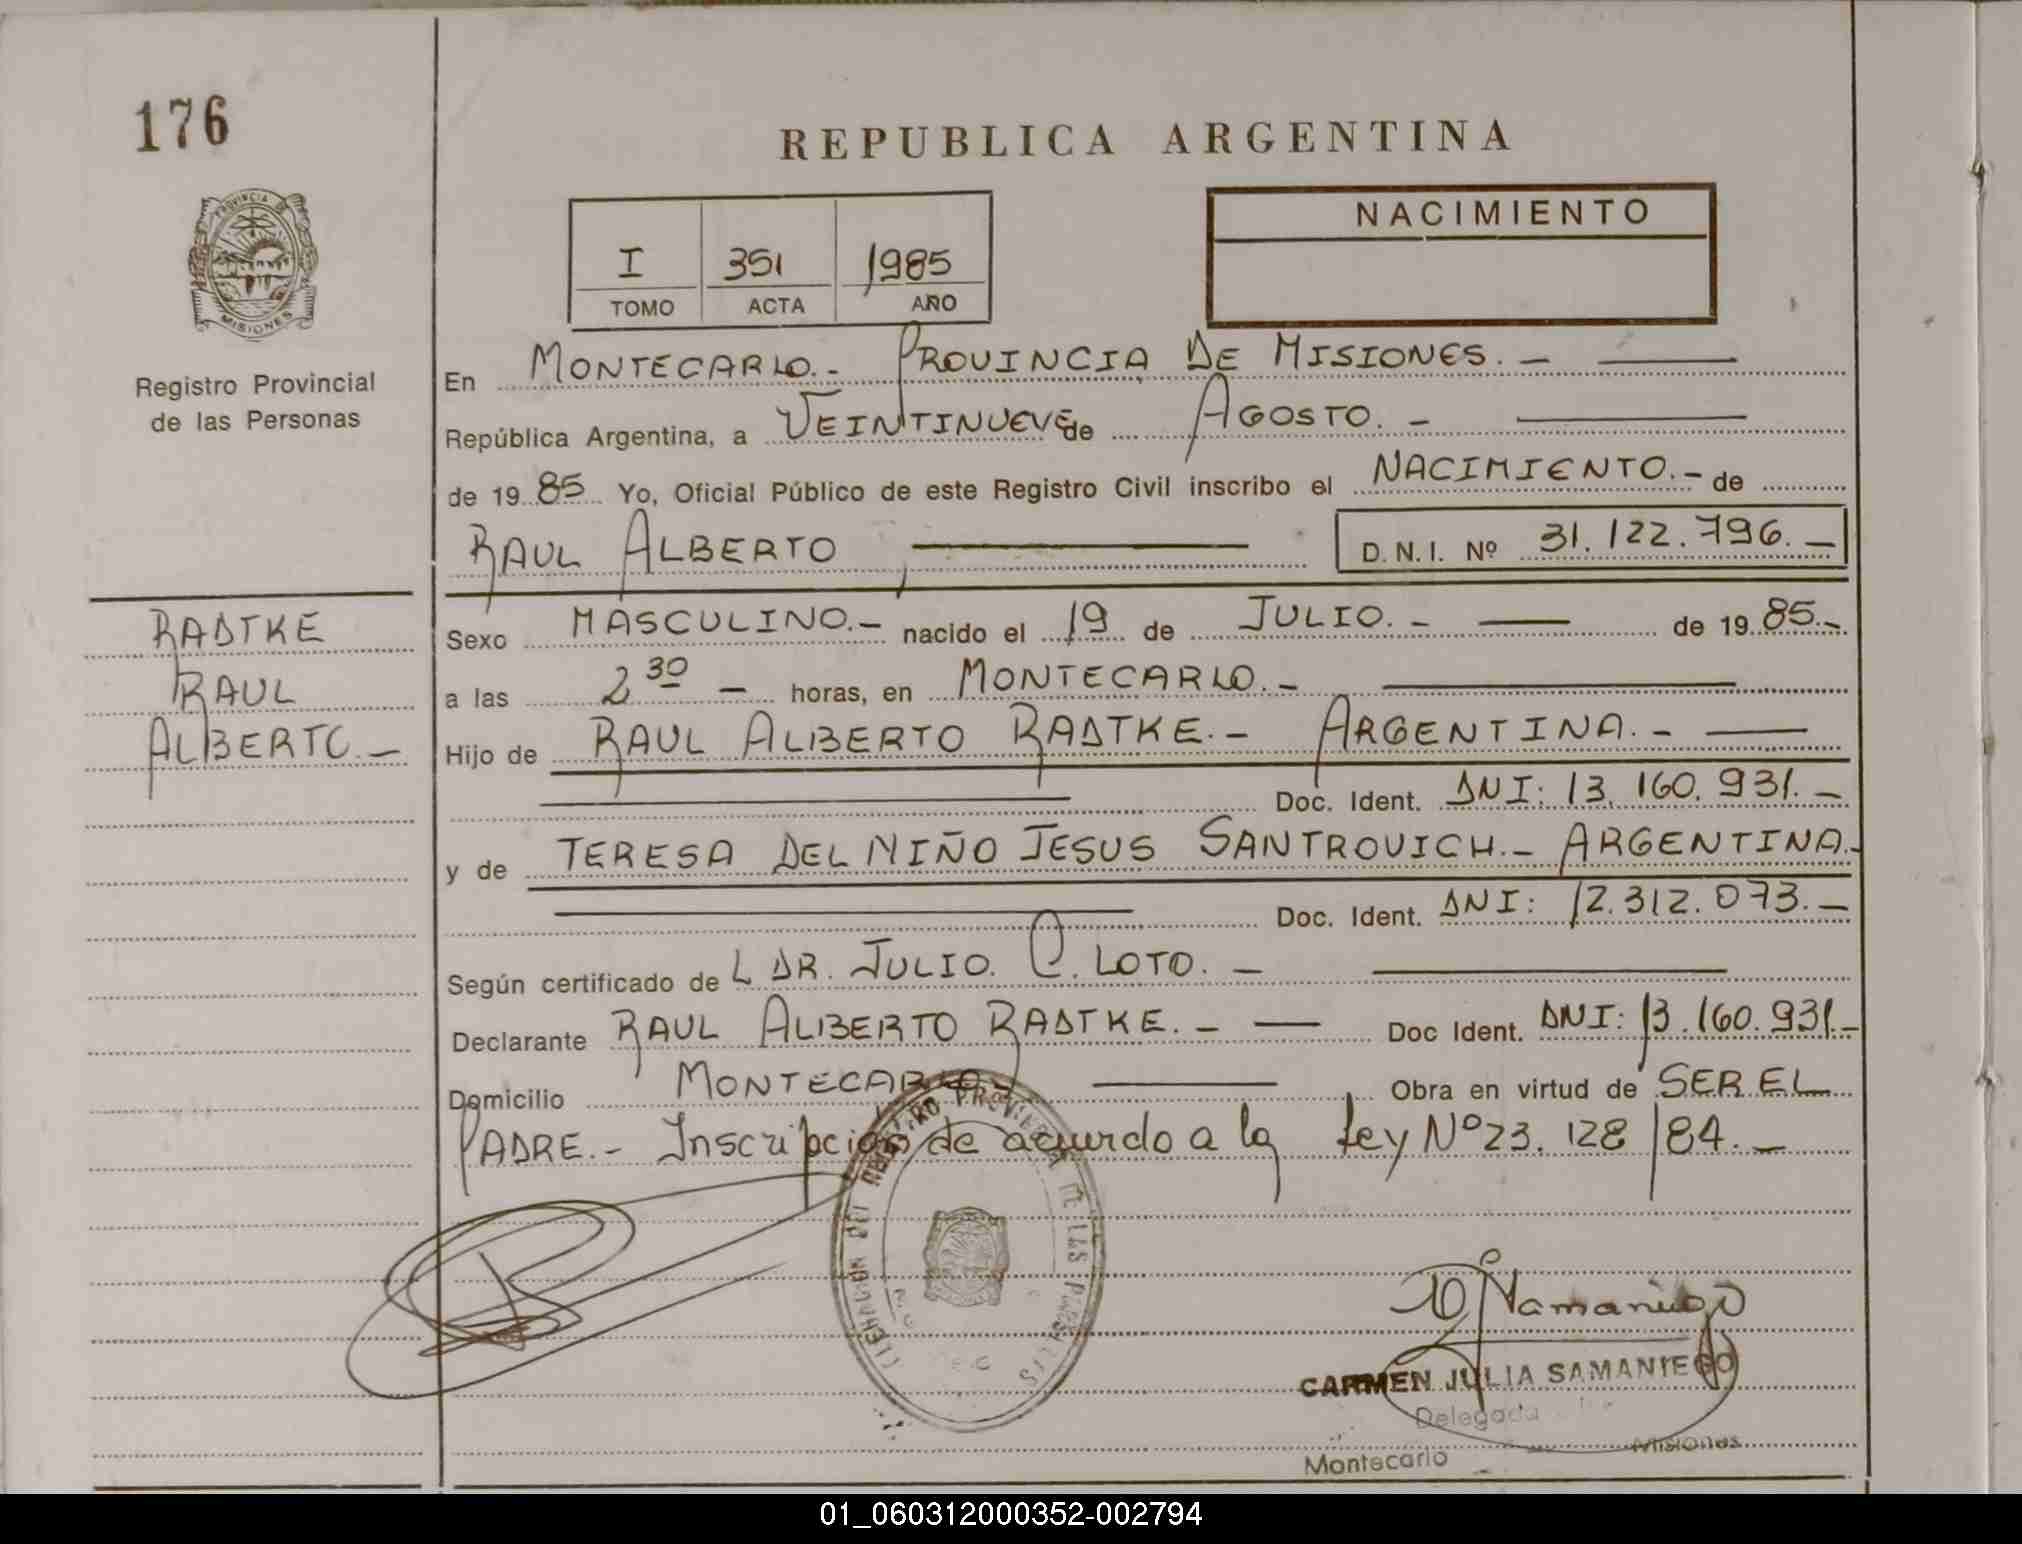 176
REPUBLICA ARGENTINA
PROVINCIA DE
MISIONES
Registro Provincial
de las Personas
I 351 1985
TOMO ACTA AÑO
NACIMIENTO
En MONTECARLO.- PROVINCIA DE MISIONES. -
República Argentina, a VEINTINUEVE de AGOSTO. -
de 19 85 Yo, Oficial Público de este Registro Civil inscribo el NACIMIENTO.- de
RAUL ALBERTO D.N.I. Nº 31.122.796. -
RADTKE
RAUL
ALBERTO. -
Sexo MASCULINO.- nacido el 19 de JULIO. - de 19 85.-
a las 2 30 - horas, en MONTECARLO. -
Hijo de RAUL ALBERTO RADTKE. - ARGENTINA. -
Doc. Ident. DNI: 13.160.931. -
y de TERESA DEL NIÑO JESUS SANTROVICH.- ARGENTINA.-
Doc. Ident. DNI: 12.312.073. -
Según certificado de L DR. JULIO. C. LOTO. -
Declarante RAUL ALBERTO RADTKE. - Doc Ident. DNI: 13.160.931.-
Domicilio MONTECARLO Obra en virtud de SER EL
PADRE.- Inscripción de acuerdo a la Ley Nº 23.128/84. -
CARMEN JULIA SAMANIEGO
Delegada
Montecarlo Misiones
01_060312000352-002794